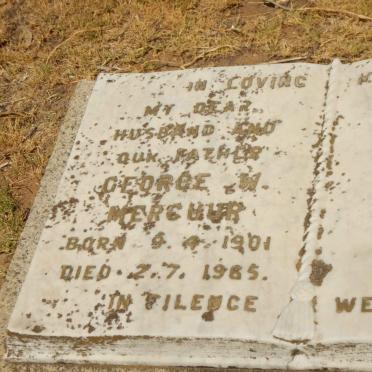 IN LOVING
MY DEAR
HUSBAND AND
OUR FATHER
GEORGE W.
BORN 9.4.1901
DIED 2.7.1965.
IN SILENCE
WE